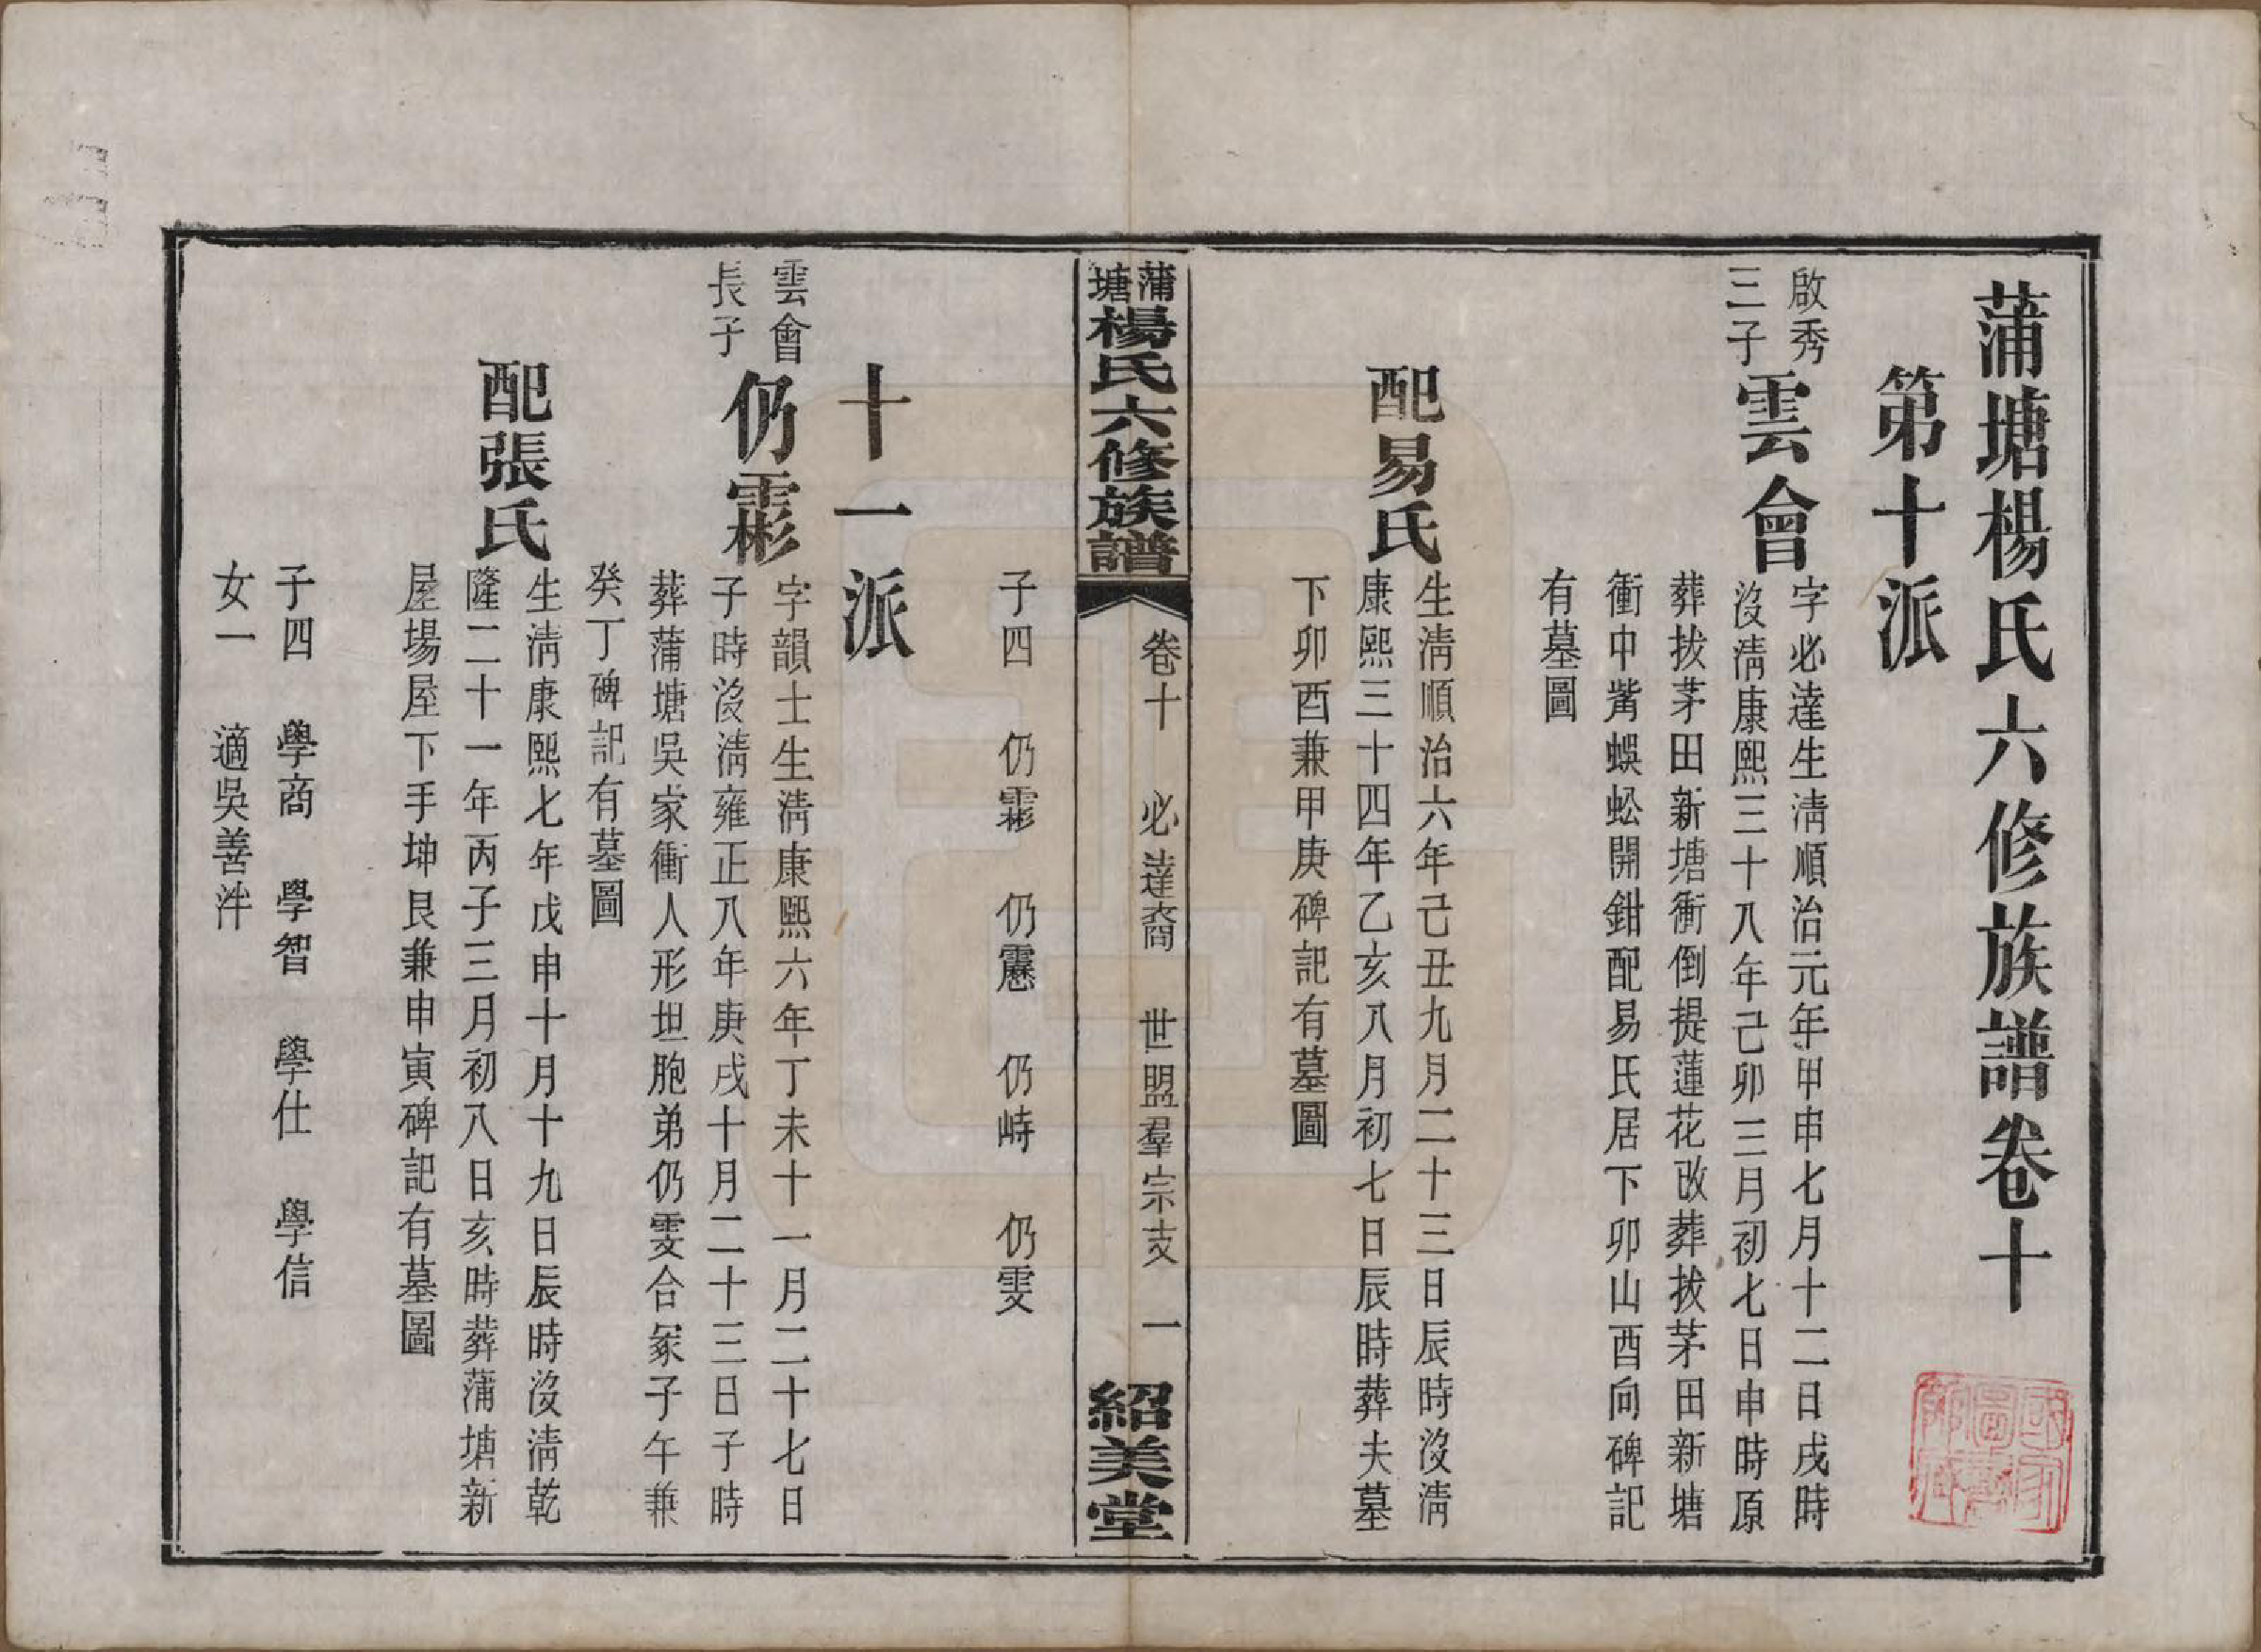 蒲塘楊氏六修族譜卷十
第十派
啟秀
三子
雲會
字必達生淸順治元年甲申七月十二日戌時
沒淸康熙三十八年己卯三月初七日申時原
葬拔茅田新塘衝倒提蓮花改葬拔茅田新塘
衝中觜蜈蚣開鉗配易氏居下卯山酉向碑記
有墓圖
配易氏
生淸順治六年己丑九月二十三日辰時沒淸
康熙三十四年乙亥八月初七日辰時葬夫墓
下卯酉兼甲庚碑記有墓圖
蒲塘楊氏六修族譜
卷十 必達裔 世盟羣宗支 一
紹美堂
子四 仍霦 仍靋 仍峙 仍雯
十一派
雲會
長子
仍霦
字韻士生淸康熙六年丁未十一月二十七日
子時沒淸雍正八年庚戌十月二十三日子時
葬蒲塘吳家衝人形坦胞弟仍雯合冢子午兼
癸丁碑記有墓圖
配張氏
生淸康熙七年戊申十月十九日辰時沒淸乾
隆二十一年丙子三月初八日亥時葬蒲塘新
屋場屋下手坤艮兼申寅碑記有墓圖
子四 學商 學智 學仕 學信
女一 適吳善泮